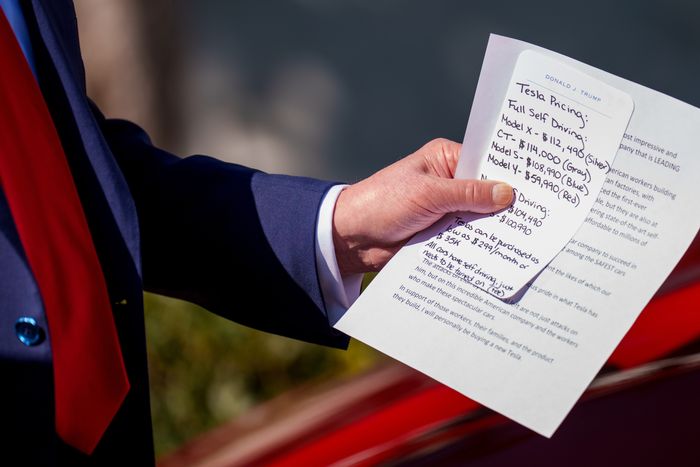 DONALD J. TRUMP
Tesla Pricing:
Full Self Driving:
Model X - $112,490 (Silver)
CT - $114,000 (Gray)
Model S - $108,990 (Blue)
Model Y - $59,990 (Red)
Driving:
$104,490
$100,990
Teslas can be purchased as
low as $299/month or
$35K
All cars have self driving, just
needs to be turned on
most impressive and
pany that is LEADING
American workers building
can factories, with
the first-ever
but they are also at
state-of-the-art self
affordable to millions of
company to succeed in
among the SAFEST cars
the likes of which our
pride in what Tesla has
The attacks on
are not just attacks on
him, but on this incredible American company and the workers
who make these spectacular cars.
In support of those workers, their families, and the product
they build, I will personally be buying a new Tesla.